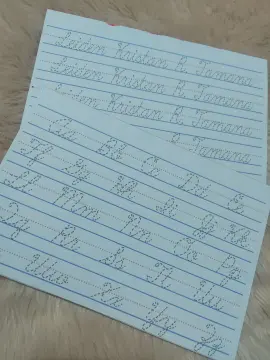 Leiden Kristan R. Tamana
Leiden Kristan R. Tamana
Leiden Kristan R. Tamana
R. Tamana
Aa Bb Cc Dd Ee
Ff Gg Hh Ii Jj Kk
Ll Mm Nn Oo Pp
Qq Rr Ss Tt Uu
Ww Xx Yy Zz